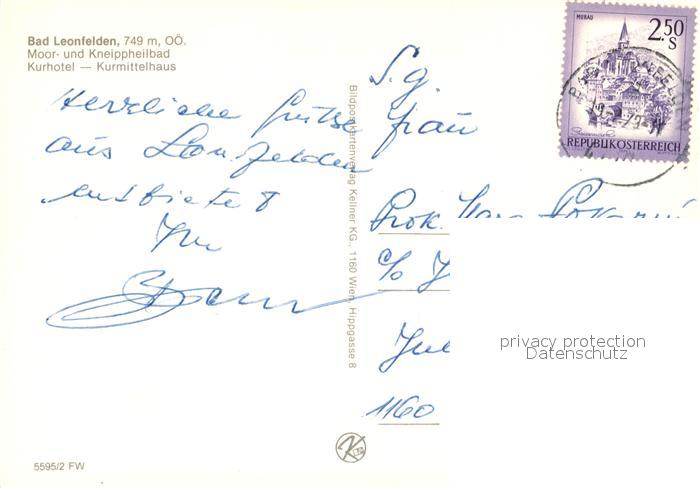 Bad Leonfelden, 749 m, OÖ.
Moor- und Kneippheilbad
Kurhotel — Kurmittelhaus
Herzliche Grüsse
aus Leonfelden
entbietet
Ihr
Bildpostkartenverlag Kellner KG., 1160 Wien, Hippgasse 8
S.g.
Frau
Prok.
c/o J
1160
MURAU
2.50
S
REPUBLIK ÖSTERREICH
privacy protection
Datenschutz
5595/2 FW